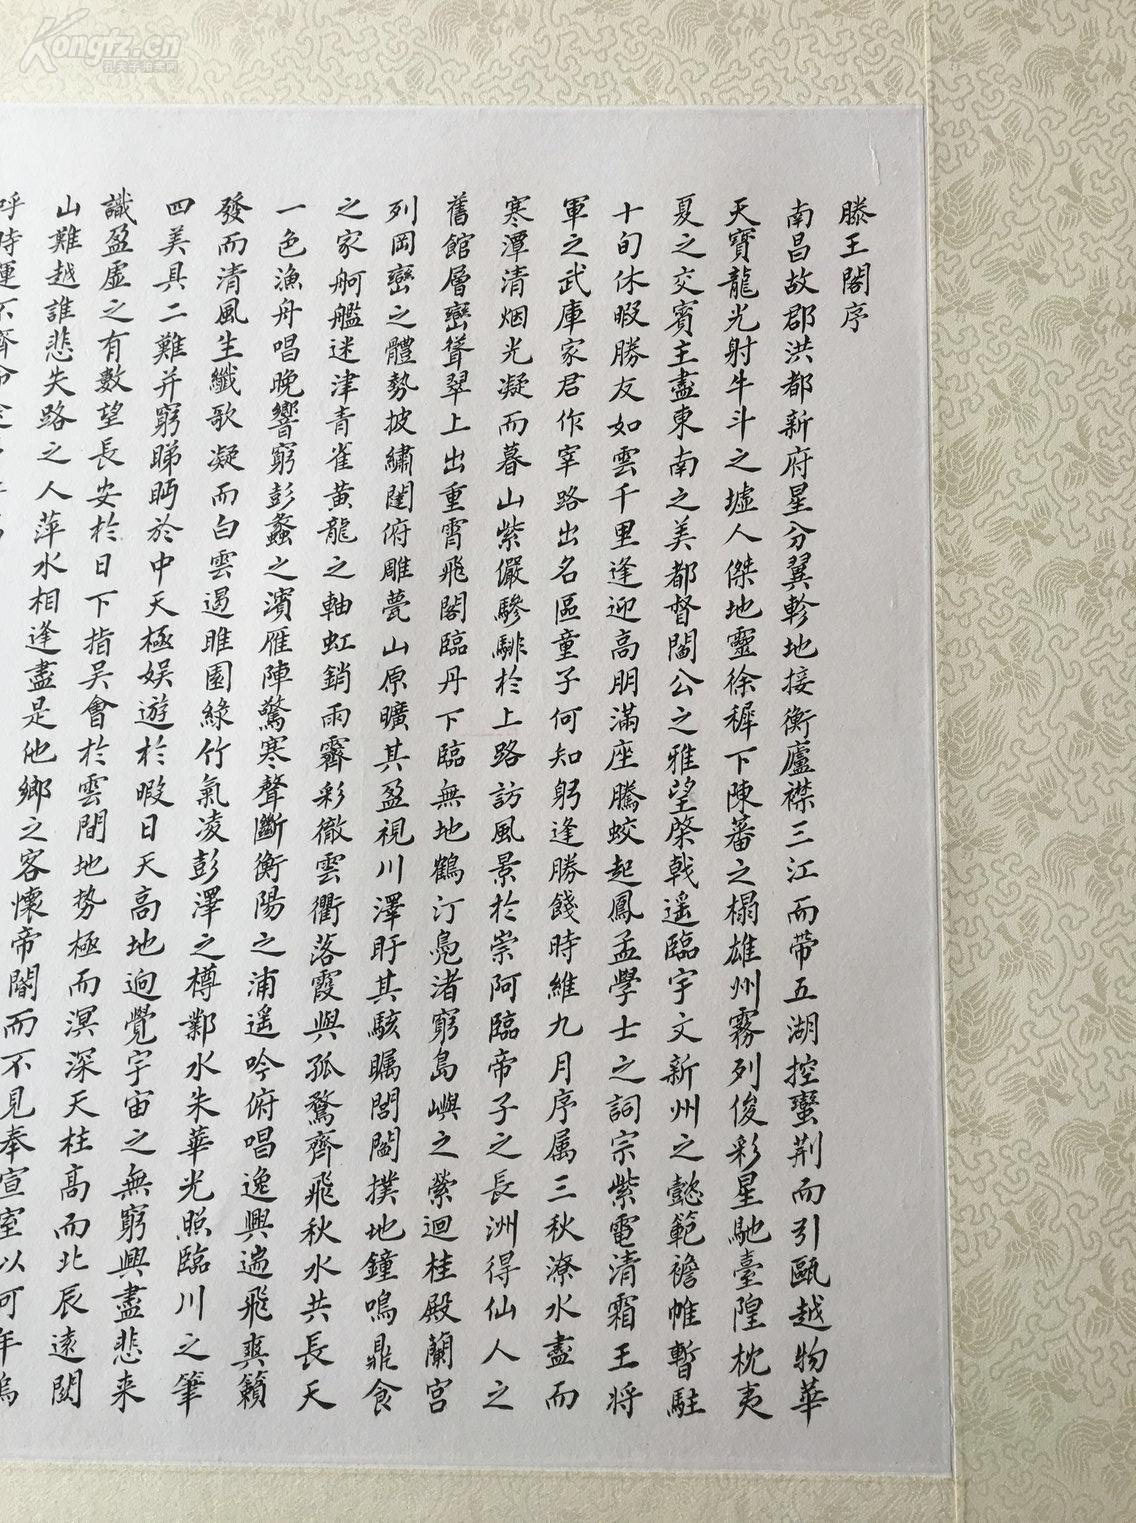 Kongfz.cn
孔夫子拍卖网
滕王閣序
南昌故郡洪都新府星分翼軫地接衡廬襟三江而带五湖控蠻荆而引甌越物華
天寳龍光射牛斗之墟人傑地靈徐穉下陳蕃之榻雄州霧列俊彩星馳臺隍枕夷
夏之交賓主盡東南之美都督閻公之雅望棨戟遥臨宇文新州之懿範襜帷暫駐
十旬休暇勝友如雲千里逢迎高朋滿座騰蛟起鳳孟學士之詞宗紫電清霜王將
軍之武庫家君作宰路出名區童子何知躬逢勝餞時維九月序属三秋潦水盡而
寒潭清烟光凝而暮山紫儼驂騑於上路訪風景於崇阿臨帝子之長洲得仙人之
舊館層巒聳翠上出重霄飛閣臨丹下臨無地鶴汀鳧渚窮島嶼之縈迴桂殿蘭宫
列岡巒之體勢披繡闥俯雕甍山原曠其盈視川澤盱其駭矚閭閻撲地鐘鳴鼎食
之家舸艦迷津青雀黃龍之軸虹銷雨霽彩徹雲衢落霞與孤鶩齊飛秋水共長天
一色漁舟唱晚響窮彭蠡之濱雁陣驚寒聲斷衡陽之浦遥吟俯唱逸興遄飛爽籟
發而清風生纖歌凝而白雲遏睢園綠竹氣凌彭澤之樽鄴水朱華光照臨川之筆
四美具二難并窮睇眄於中天極娱遊於暇日天高地迥覺宇宙之無窮興盡悲来
識盈虛之有數望長安於日下指吴會於雲間地势極而溟深天柱高而北辰遠関
山難越誰悲失路之人萍水相逢盡是他鄉之客懷帝閽而不見奉宣室以何年嗚
呼時運不齊命途